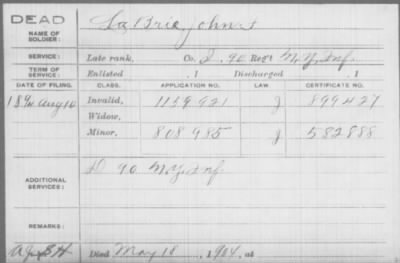 DEAD
NAME OF SOLDIER: LaBrie, John F
SERVICE: Late rank, Co. I. 90 Reg't N.Y. Inf.
TERM OF SERVICE: Enlisted , 1 Discharged , 1
DATE OF FILING. CLASS. APPLICATION NO. LAW. CERTIFICATE NO.
1892 Aug 10 Invalid, 1139921 J 899427
Widow,
Minor, 808985 J 582888
ADDITIONAL SERVICES: D 90 N.Y. Inf
REMARKS:
Died May 18, 1904, at